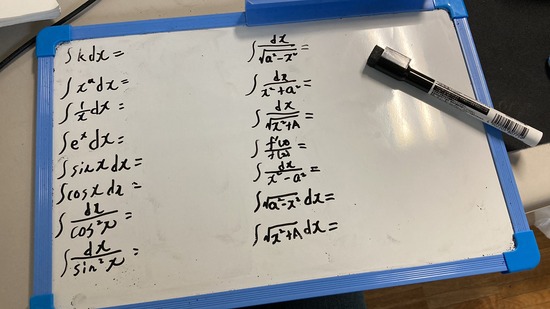 ∫kdx=
∫xᵃdx=
∫1/x dx=
∫eˣdx=
∫sinxdx=
∫cosxdx=
∫dx/cos²x=
∫dx/sin²x=
∫dx/√(a²-x²)=
∫dx/(x²+a²)=
∫dx/√(x²+A)=
∫f'(x)/f(x)=
∫dx/(x²-a²)=
∫√(a²-x²)dx=
∫√(x²+A)dx=